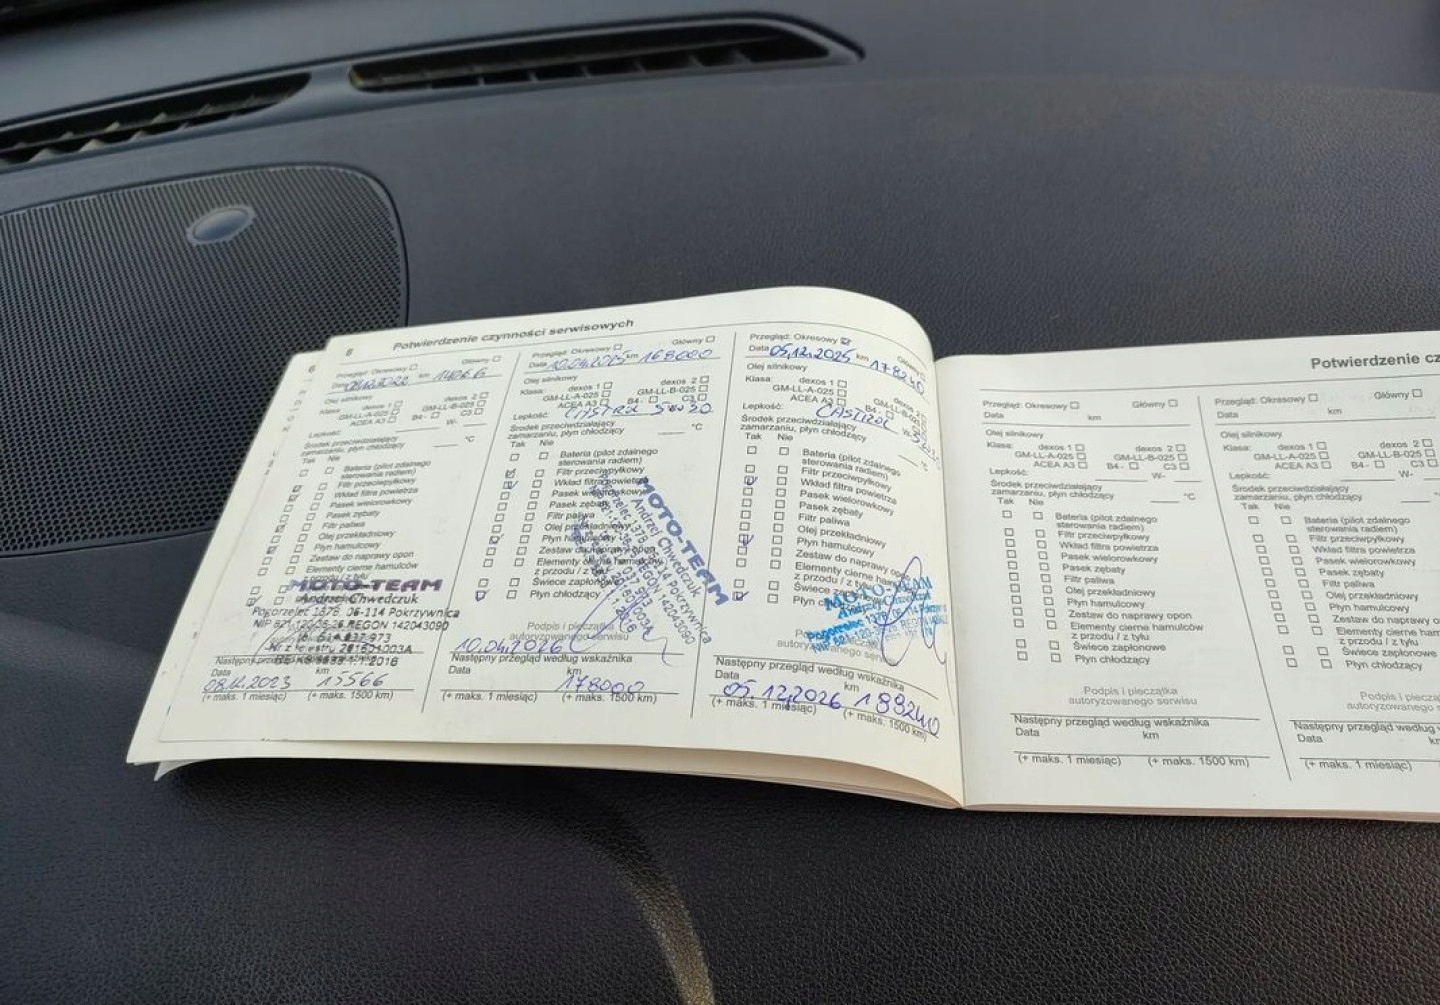 6
8
Potwierdzenie czynności serwisowych
Przegląd: Okresowy
Główny
Data
km
Olej silnikowy
Klasa:
dexos 1
dexos 2
GM-LL-A-025
GM-LL-B-025
ACEA A3
B4-
C3
Lepkość:
W-
Środek przeciwdziałający
zamarzaniu, płyn chłodzący
°C
Tak Nie
Bateria (pilot zdalnego
sterowania radiem)
Filtr przeciwpyłkowy
Wkład filtra powietrza
Pasek wielorowkowy
Pasek zębaty
Filtr paliwa
Olej przekładniowy
Płyn hamulcowy
Zestaw do naprawy opon
Elementy cierne hamulców
z przodu / z tyłu
MOTO-TEAM
Andrzej Chwedczuk
Pogorzelec 137B, 05-114 Pokrzywnica
REGON 142043090
Następny przegląd
Data
km
08.12.2023
(+ maks. 1 miesiąc)
(+ maks. 1500 km)
Przegląd: Okresowy
Główny
Data 10.04.2025 km 168000
Olej silnikowy
Klasa:
dexos 1
dexos 2
GM-LL-A-025
GM-LL-B-025
ACEA A3
B4-
C3
Lepkość: CASTROL 5W30
Środek przeciwdziałający
zamarzaniu, płyn chłodzący
°C
Tak Nie
Bateria (pilot zdalnego
sterowania radiem)
Filtr przeciwpyłkowy
Wkład filtra powietrza
Pasek wielorowkowy
Pasek zębaty
Filtr paliwa
Olej przekładniowy
Płyn hamulcowy
Zestaw do naprawy opon
Elementy cierne hamulców
z przodu / z tyłu
Świece zapłonowe
Płyn chłodzący
MOTO-TEAM
Andrzej Chwedczuk
Pogorzelec 137B, 05-114 Pokrzywnica
REGON 142043090
Podpis i pieczątka
autoryzowanego serwisu
10.04.2026
Następny przegląd według wskaźnika
Data
km
178000
(+ maks. 1 miesiąc)
(+ maks. 1500 km)
Przegląd: Okresowy
Główny
Data 05.12.2025 km 178240
Olej silnikowy
Klasa:
dexos 1
dexos 2
GM-LL-A-025
GM-LL-B-025
ACEA A3
B4-
C3
Lepkość: CASTROL
Środek przeciwdziałający
zamarzaniu, płyn chłodzący
°C
Tak Nie
Bateria (pilot zdalnego
sterowania radiem)
Filtr przeciwpyłkowy
Wkład filtra powietrza
Pasek wielorowkowy
Pasek zębaty
Filtr paliwa
Olej przekładniowy
Płyn hamulcowy
Zestaw do naprawy opon
Elementy cierne
z przodu / z tyłu
Świece zapłonowe
Płyn
MOTO-TEAM
Pogorzelec 137B, 05-114
Następny przegląd według wskaźnika
Data
km
05.12.2026 188240
(+ maks. 1 miesiąc)
(+ maks. 1500 km)
Potwierdzenie cz
Przegląd: Okresowy
Główny
Data
km
Olej silnikowy
Klasa:
dexos 1
dexos 2
GM-LL-A-025
GM-LL-B-025
ACEA A3
B4-
C3
Lepkość:
W-
Środek przeciwdziałający
zamarzaniu, płyn chłodzący
°C
Tak Nie
Bateria (pilot zdalnego
sterowania radiem)
Filtr przeciwpyłkowy
Wkład filtra powietrza
Pasek wielorowkowy
Pasek zębaty
Filtr paliwa
Olej przekładniowy
Płyn hamulcowy
Zestaw do naprawy opon
Elementy cierne hamulców
z przodu / z tyłu
Świece zapłonowe
Płyn chłodzący
Podpis i pieczątka
autoryzowanego serwisu
Następny przegląd według wskaźnika
Data
km
(+ maks. 1 miesiąc)
(+ maks. 1500 km)
Przegląd: Okresowy
Główny
Data
km
Olej silnikowy
Klasa:
dexos 1
dexos 2
GM-LL-A-025
GM-LL-B-025
ACEA A3
B4-
C3
Lepkość:
W-
Środek przeciwdziałający
zamarzaniu, płyn chłodzący
Tak Nie
Bateria (pilot zdalnego
sterowania radiem)
Filtr przeciwpyłkowy
Wkład filtra powietrza
Pasek wielorowkowy
Pasek zębaty
Filtr paliwa
Olej przekładniowy
Płyn hamulcowy
Zestaw do naprawy o
Elementy cierne ham
z przodu / z tyłu
Świece zapłonowe
Płyn chłodzący
Podpis i pieczątka
autoryzowanego s
Następny przegląd według wskaźn
Data
km
(+ maks. 1 miesiąc)